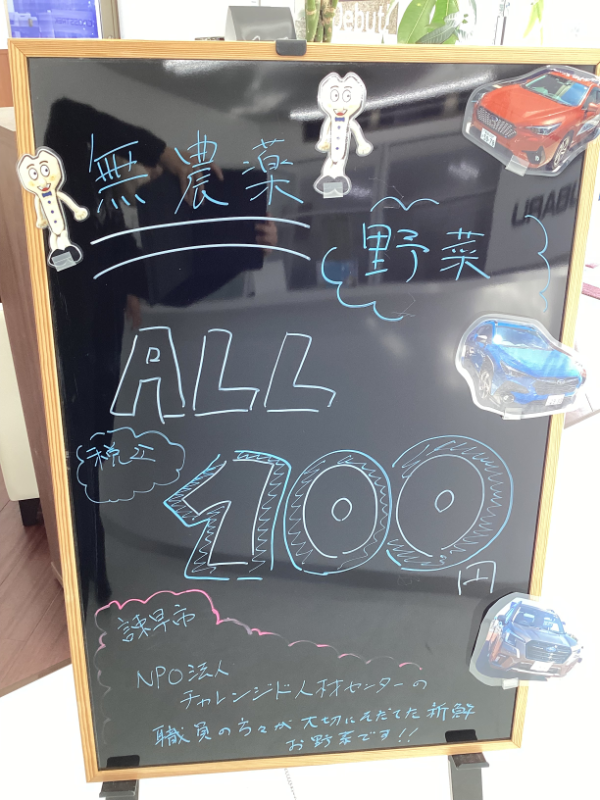 Debut
無農薬
野菜
ALL
税込
100
円
諫早市
NPO法人
チャレンジド人材センターの
職員の方々が大切にそだてた新鮮
お野菜です!!